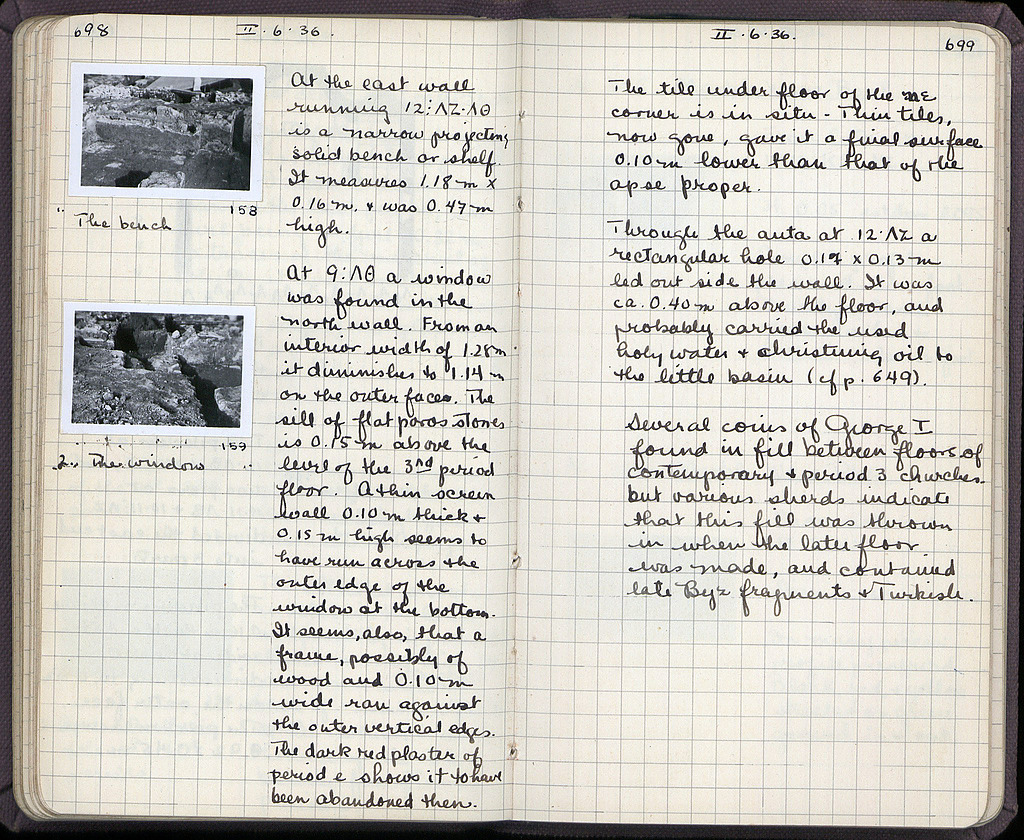 698
II · 6 · 36 .
158
The bench
159
2. The window
At the east wall
running 12:ΛΖ-ΛΘ
is a narrow projecting
solid bench or shelf.
It measures 1.18 m x
0.16 m, & was 0.47 m
high.
At 9:ΛΘ a window
was found in the
north wall. From an
interior width of 1.28 m
it diminishes to 1.14 m
on the outer face. The
sill of flat poros stones
is 0.15 m above the
level of the 3rd period
floor. A thin screen
wall 0.10 m thick &
0.15 m high seems to
have run across the
outer edge of the
window at the bottom.
It seems, also, that a
frame, possibly of
wood and 0.10 m
wide ran against
the outer vertical edges.
The dark red plaster of
period e shows it to have
been abandoned then.
II · 6 · 36.
699
The tile under floor of the NE
corner is in situ - Thin tiles,
now gone, gave it a final surface
0.10 m lower than that of the
apse proper.
Through the anta at 12·ΛΖ a
rectangular hole x 0.13 m
led out side the wall. It was
ca. 0.40 m above the floor, and
probably carried the used
holy water & christening oil to
the little basin (cf p. 649).
Several coins of George I
found in fill between floors of
contemporary & period 3 churches.
but various sherds indicate
that this fill was thrown
in when the later floor
was made, and contained
late Byz fragments & Turkish.